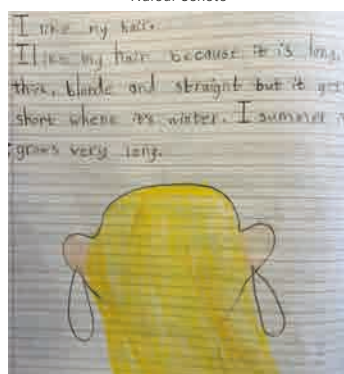 I like my hair.
I like my hair because it is long,
thik, blonde and straight but it get
short where it's winter. I summer it
grows very long.